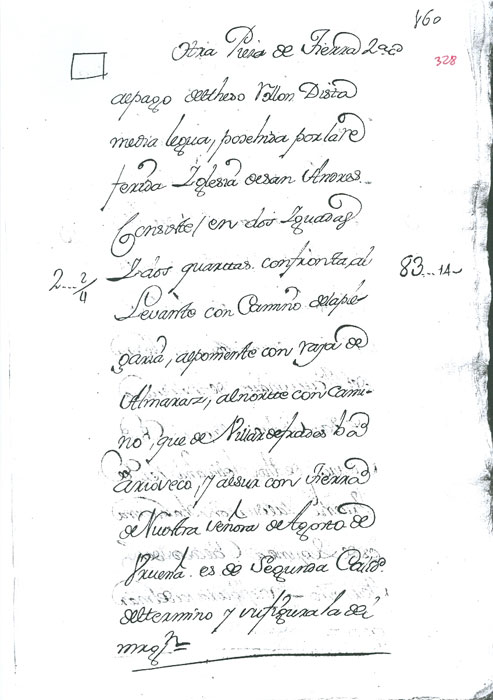 160
328
Otra Pieza de Tierra
al pago
media legua, posehida por la re
ferida Iglesia de san Andres.
Consiste en dos Iguadas
2...2/4 y dos quartas. confronta, al 83...14
Levante con Camino de la
, al poniente con raya de
Almaraz, al norte con Cami-
no, que de Villardefrades ba
a Rioseco, y al sur con Tierra
de Nuestra Señora de Agosto de
Urueña. es de Segunda Calid.
del termino y su figura la del
margn